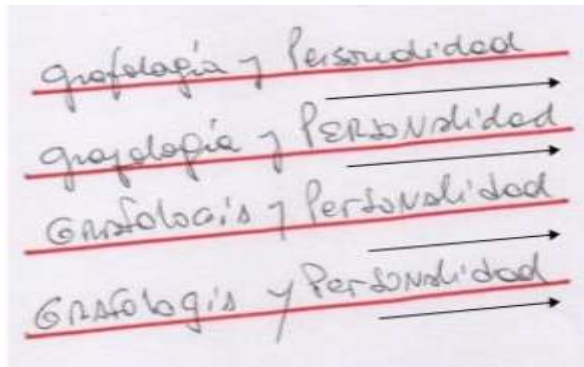 grafología y Personalidad
grafología y PERSONalidad
GRafología y PersoNalidad
GRafologia y PerSoNalidad